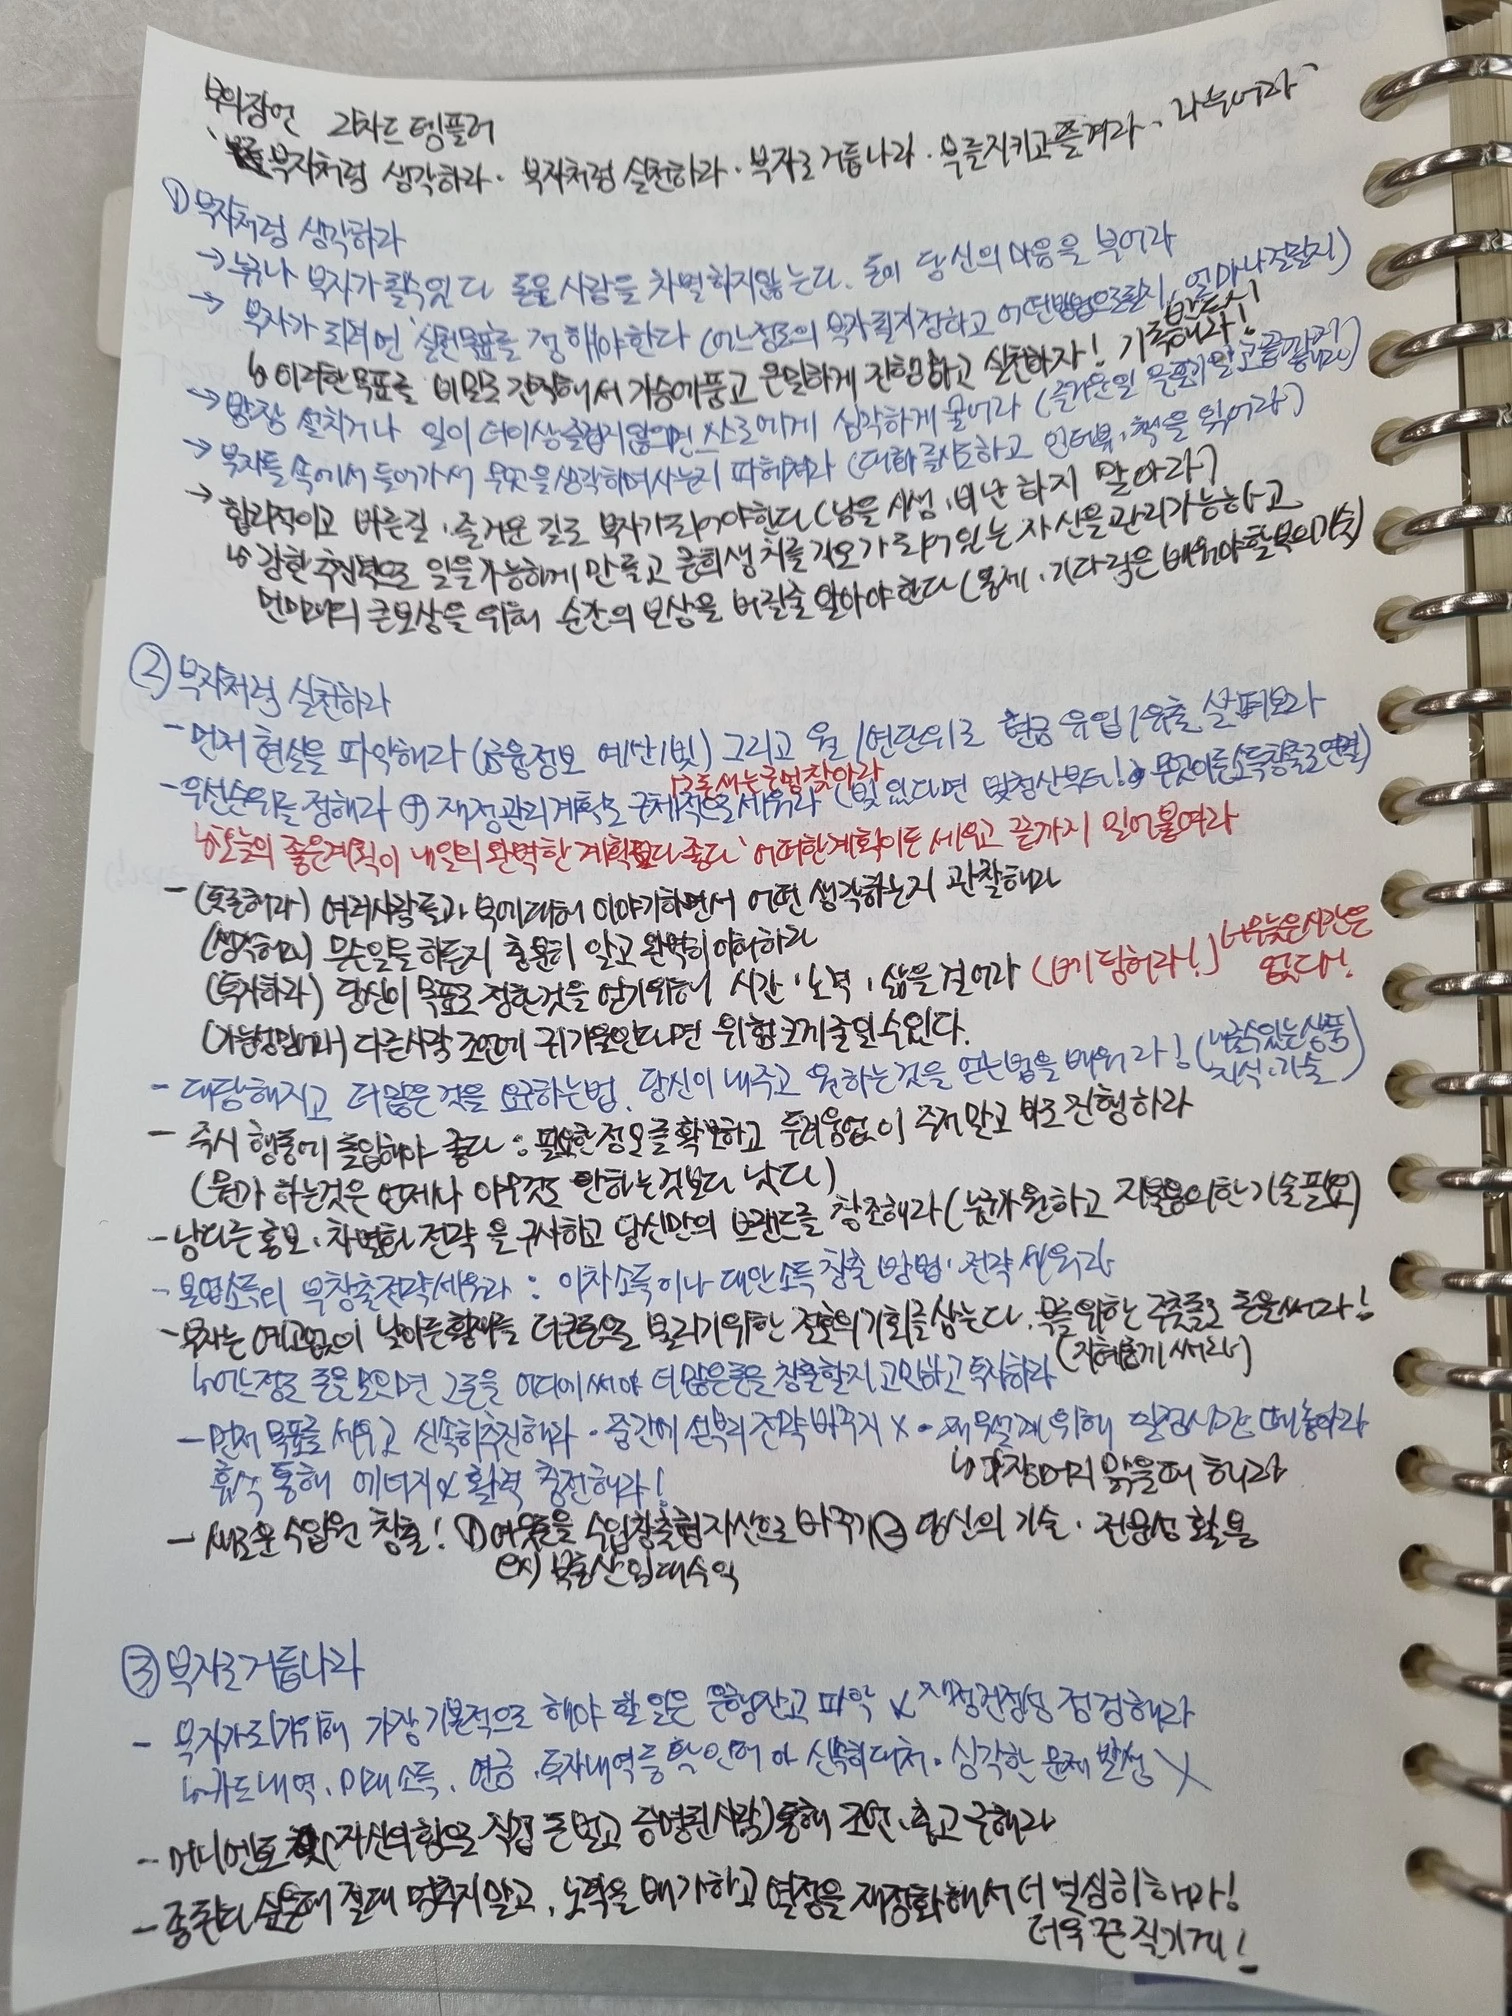 부의 잠언 리차드 템플러
부자처럼 생각하라 · 부자처럼 실천하라 · 부자로 거듭나라 · 부를 지키고 즐겨라 · 나누어라
① 부자처럼 생각하라
→ 누구나 부자가 될 수 있다 돈은 사람을 차별하지 않는다. 돈에 당신의 마음을 부어라
→ 부자가 되려면 '실천목표'를 정해야 한다 (어느정도의 부자 될지 정하고 어떤방법으로 할지, 얼마나 걸릴지)
↳ 이러한 목표를 비밀로 간직해서 가슴에 품고 은밀하게 진행하고 실천하자! 반드시 기록해라!
→ 밤잠 설치거나 일이 더이상 즐겁지 않으면 스스로에게 심각하게 물어라 (즐거운 일
→ 부자들 속에서 들어가서 무엇을 생각하며 사는지 파헤쳐라 (대화 하고 인터뷰, 책을 읽어라)
→ 합리적이고 바른길, 즐거운 길로 부자가 되어야 한다 (남을 시샘, 비난 하지 말아라)
↳ 강한 추진력으로 일을 가능하게 만들고 큰 희생 치를 각오가 되어 있는 자 자산을 관리 가능하고
먼 미래의 큰 보상을 위해 순간의 보상을 버릴줄 알아야 한다 (통제, 기다림은 배워야 할 부의 기술)
② 부자처럼 실천하라
- 먼저 현실을 파악해라 (금융정보 예산/빚) 그리고 월/연단위로 현금 유입/유출 살펴보라
돈 새는 구멍 찾아라
- 우선순위를 정해라 ⊕ 재정관리계획도 구체적으로 세워라 (빚 있다면 빚청산부터! 무엇이든 소득창출로 연결)
↳ '오늘의 좋은계획이 내일의 완벽한 계획보다 좋다' 어떠한 계획이든 세우고 끝까지 밀어붙여라
- (토론해라) 여러사람들과 부에 대해 이야기하면서 어떤 생각하는지 관찰해라
(생각해라) 무슨일을 하든지 충분히 알고 완벽히 이해하라
(투자하라) 당신이 목표로 정한것을 얻기위해 시간, 노력, 삶을 걸어라 (베팅해라!) 너무 늦은시간은 없다!
다른사람 조언에 귀 기울인다면 위험 크게 줄일 수 있다.
- 대담해지고 더 많은 것을 요구하는법, 당신이 내주고 원하는것을 얻는 법을 배워라! (내줄수있는 상품 지식·기술)
- 즉시 행동에 돌입해야 좋다 : 필요한 정보를 확보하고 두려움없이 주저말고 바로 진행하라
(뭔가 하는것은 언제나 아무것도 안하는것보다 낫다)
- 남다른 홍보, 차별화 전략을 구사하고 당신만의 브랜드를 창조해라 (누군가 원하고 지불용의한 기술필요)
- 불엽소득의 부창출전략세워라 : 이차소득이나 대안소득 창출 방법·전략 세워라
- 부자는 예고없이 낮아든 황재를 더 큰돈으로 불리기위한 절호의 기회로 삼는다. 부를 위한 주춧돌로 돈을 써라!
(지혜롭게 써라)
↳ 어느정도 돈을 모으면 그 돈을 어디에 써야 더 많은 돈을 창출할지 고민하고 투자하라
- 먼저 목표를 세우고 신속히 추진해라 · 중간에 섣부리 전략 바꾸지 X · 재무설계 위해 일정시간 떼놓아라
↳ 가장 머리 맑을때 해라
휴식 통해 에너지 & 활력 충전해라!
- 새로운 수입원 창출! ① 여윳돈을 수입창출형 자산으로 바꾸기 ② 당신의 기술·전문성 활용
예) 부동산 임대수익
③ 부자로 거듭나라
- 부자가 되기위해 가장 기본적으로 해야 할 일은 은행잔고 파악 & 재정건정성 점검해라
↳ 카드내역, 미래소득, 연금, 투자내역등 확인해야 신속히 대처 · 심각한 문제 발생 X
- 머니멘토 (자신의 힘으로 직접 돈 벌고 증명된 사람) 통해 조언, 충고 구해라
- 중환다 싶은때 절대 멈추지말고, 노력을 배가하고 열정을 재정화해서 더 열심히 하라!
더욱 끈질기게!